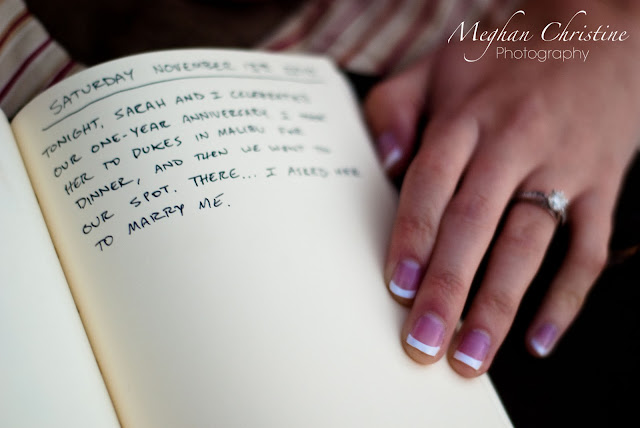 Meghan Christine
Photography
SATURDAY NOVEMBER
TONIGHT, SARAH AND I CELEBRATED
OUR ONE-YEAR ANNIVERSARY. I TOOK
HER TO DUKES IN MALIBU FOR
DINNER, AND THEN WE WENT TO
OUR SPOT. THERE... I ASKED HER
TO MARRY ME.